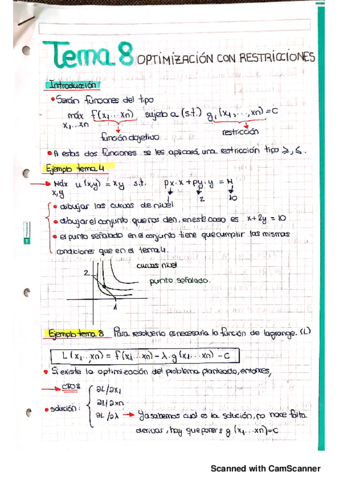 Tema 8 OPTIMIZACIÓN CON RESTRICCIONES
Introducción
• Serán funciones del tipo
máx f(x1...xn) sujeto a (s.t.) g1(x1,...,xn)=C
x1...xn
función objetivo
restricción
• A estas dos funciones se les aplicará, una restricción tipo ≥, ≤.
Ejemplo tema 4
Máx u(x,y) = x.y s.t. px.x + py.y = M
x,y
1 2 10
• dibujar las curvas de nivel
• dibujar el conjunto que nos den, en este caso es x+2y=10
• el punto señalado en el conjunto tiene que cumplir las mismas
condiciones que en el tema 4.
curvas nivel
punto señalado.
2
4
Ejemplo tema 8 Para resolverlo es necesaria la función de lagrange. (L)
L(x1...xn) = f(x1...xn) - λ.g(x1...xn) - C
• Si existe la optimización del problema planteado, entonces,
• solución:
∂L/∂x1
∂L/∂xn
∂L/∂λ → Ya sabemos cual es la solución, no hace falta
derivar, hay que poner g(x1...xn)=C
Scanned with CamScanner